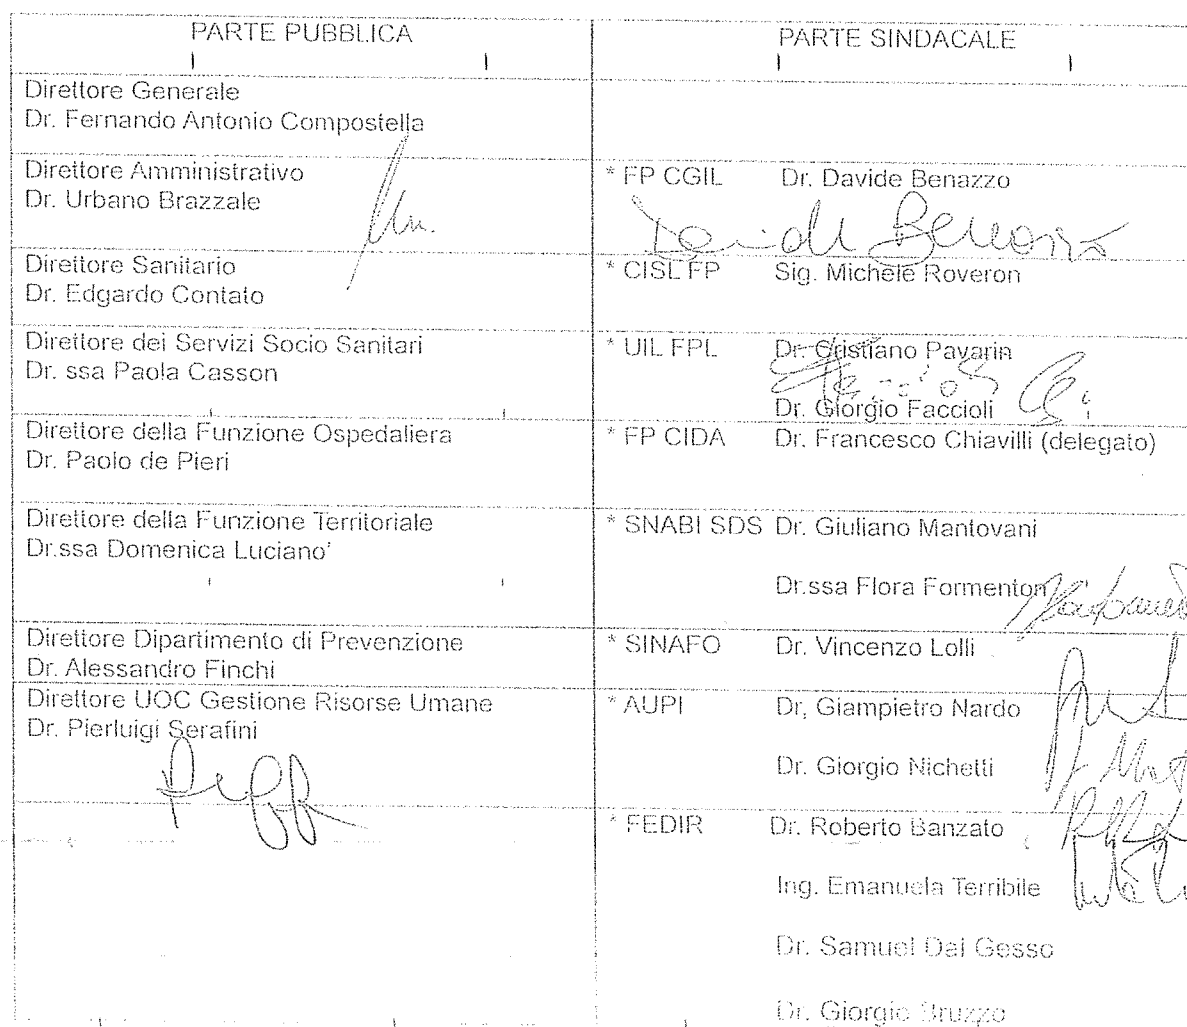 PARTE PUBBLICA
PARTE SINDACALE
Direttore Generale
Dr. Fernando Antonio Compostella
Direttore Amministrativo
Dr. Urbano Brazzale
* FP CGIL Dr. Davide Benazzo
Davide Benazzo
Direttore Sanitario
Dr. Edgardo Contato
* CISL FP Sig. Michele Roveron
Direttore dei Servizi Socio Sanitari
Dr. ssa Paola Casson
* UIL FPL Dr. Cristiano Pavarin
Dr. Giorgio Faccioli
Direttore della Funzione Ospedaliera
Dr. Paolo de Pieri
* FP CIDA Dr. Francesco Chiavilli (delegato)
Direttore della Funzione Territoriale
Dr.ssa Domenica Luciano'
* SNABI SDS Dr. Giuliano Mantovani
Dr.ssa Flora Formenton
Direttore Dipartimento di Prevenzione
Dr. Alessandro Finchi
* SINAFO Dr. Vincenzo Lolli
Direttore UOC Gestione Risorse Umane
Dr. Pierluigi Serafini
* AUPI Dr, Giampietro Nardo
Dr. Giorgio Nichetti
* FEDIR Dr. Roberto Banzato
Ing. Emanuela Terribile
Dr. Samuel Dal Gesso
Dr. Giorgio Bruzzo